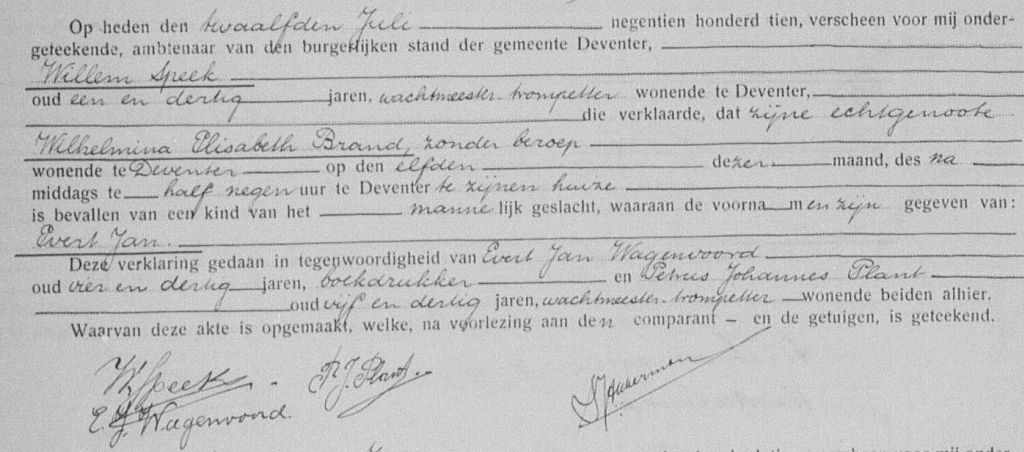 Op heden den twaalfden Juli negentien honderd tien, verscheen voor mij onder-
geteekende, ambtenaar van den burgerlijken stand der gemeente Deventer,
Willem Speek
oud een en dertig jaren, wachtmeester-trompetter wonende te Deventer,
die verklaarde, dat zijne echtgenoote
Wilhelmina Elisabeth Brand, zonder beroep
wonende te Deventer op den elfden dezer maand, des na
middags te half negen uur te Deventer te zijnen huize
is bevallen van een kind van het mannelijk geslacht, waaraan de voornamen zijn gegeven van:
Evert Jan.
Deze verklaring gedaan in tegenwoordigheid van Evert Jan Wagenvoord
oud vier en dertig jaren, boekdrukker en Petrus Johannes Plant
oud vijf en dertig jaren, wachtmeester-trompetter wonende beiden alhier.
Waarvan deze akte is opgemaakt, welke, na voorlezing aan den comparant – en de getuigen, is geteekend.
W. Speek. P. J. Plant.
E. J. Wagenvoord.